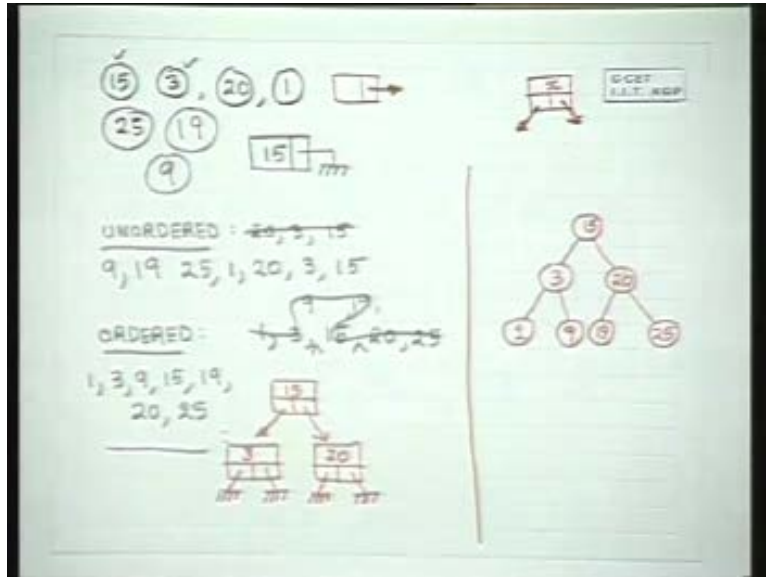 15 3, 20, 1
25 19
9
15
UNORDERED: 20, 3, 15
9, 19 25, 1, 20, 3, 15
ORDERED: 1, 3, 15, 20, 25
9 19
1, 3, 9, 15, 19,
20, 25
15
3 20
I.I.T. KGP
15
3 20
1 9 19 25